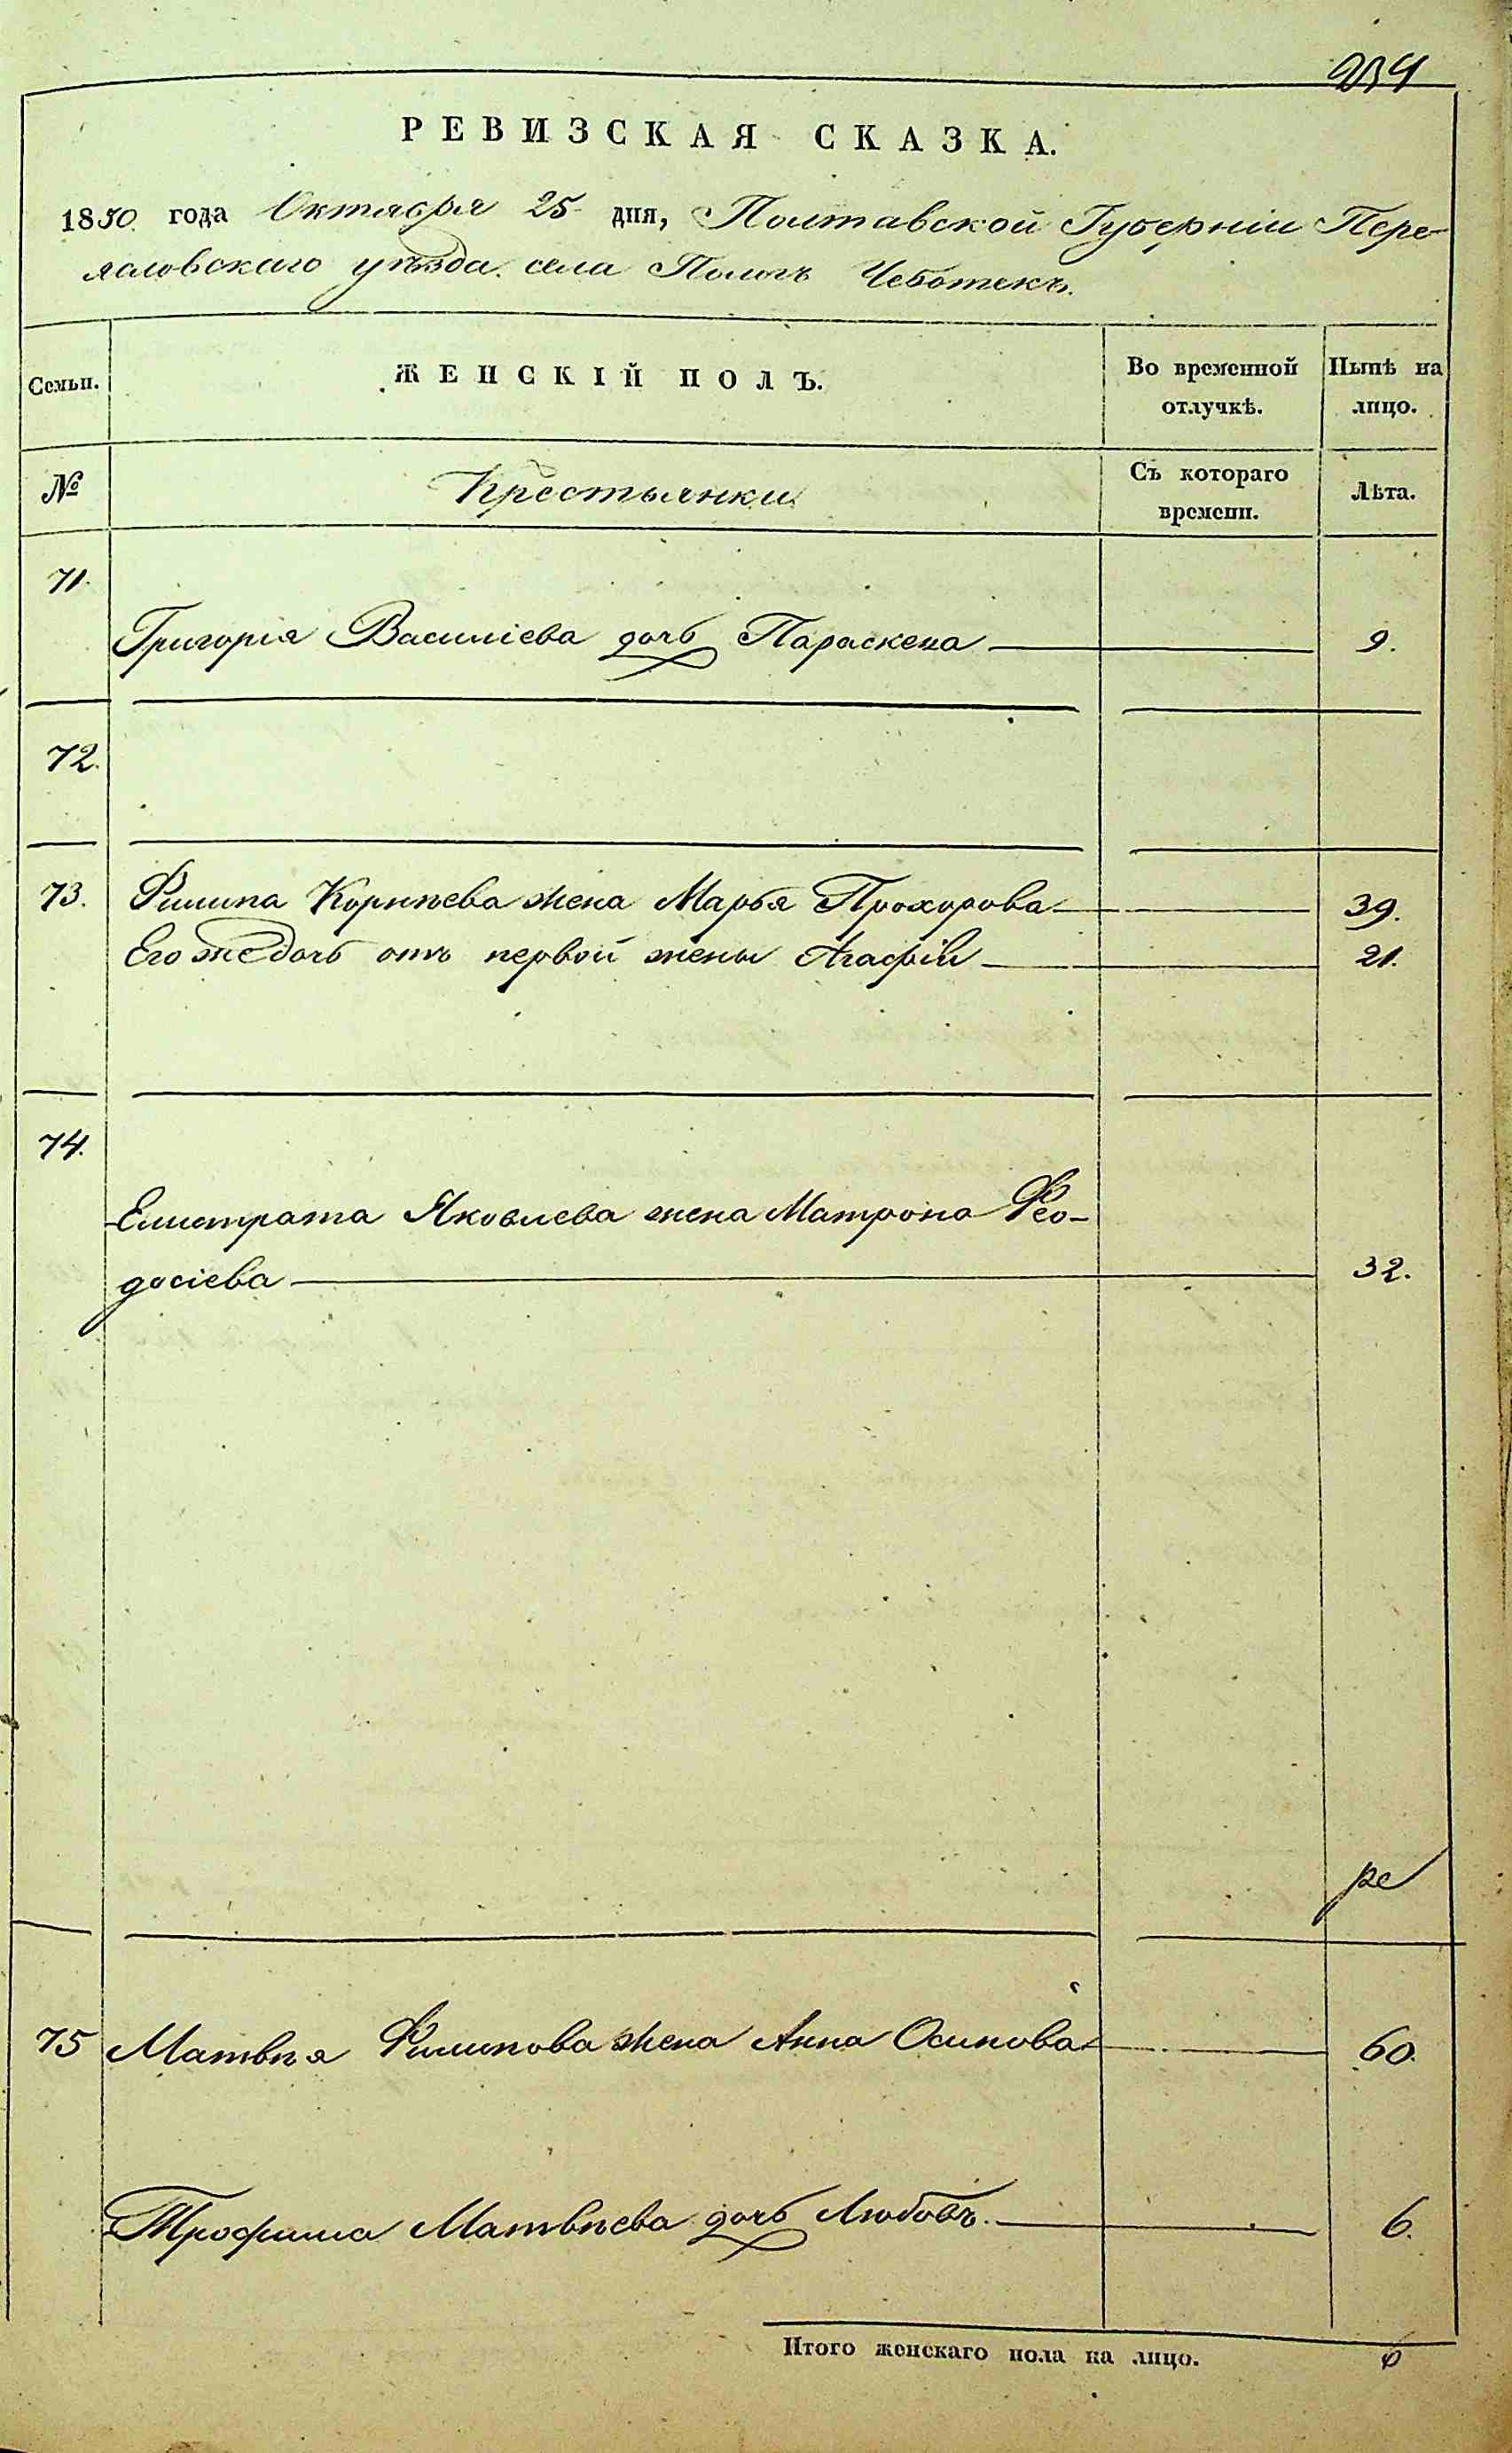 234
РЕВИЗСКАЯ СКАЗКА.
1850 года Октября 25 дня, Полтавской Губерніи Пере-
ясловскаго уѣзда села Пологъ Чеботекъ.
Семьи.
ЖЕНСКІЙ ПОЛЪ.
Во временной отлучкѣ.
Нынѣ на лицо.
№
Крестьянки
Съ котораго времени.
Лѣта.
71.
Григорія Василіева дочь Параскева 9.
72.
73. Филипа Корнѣева жена Марья Прохорова 39.
Его же дочь отъ первой жены Агафіи 21.
74.
Елистрата Яковлева жена Матрона Фео-
досіева 32.
75 Матвѣя Филипова жена Анна Осипова 60.
Трофима Матвѣева дочь Любовъ. 6.
Итого женскаго пола на лицо. 6